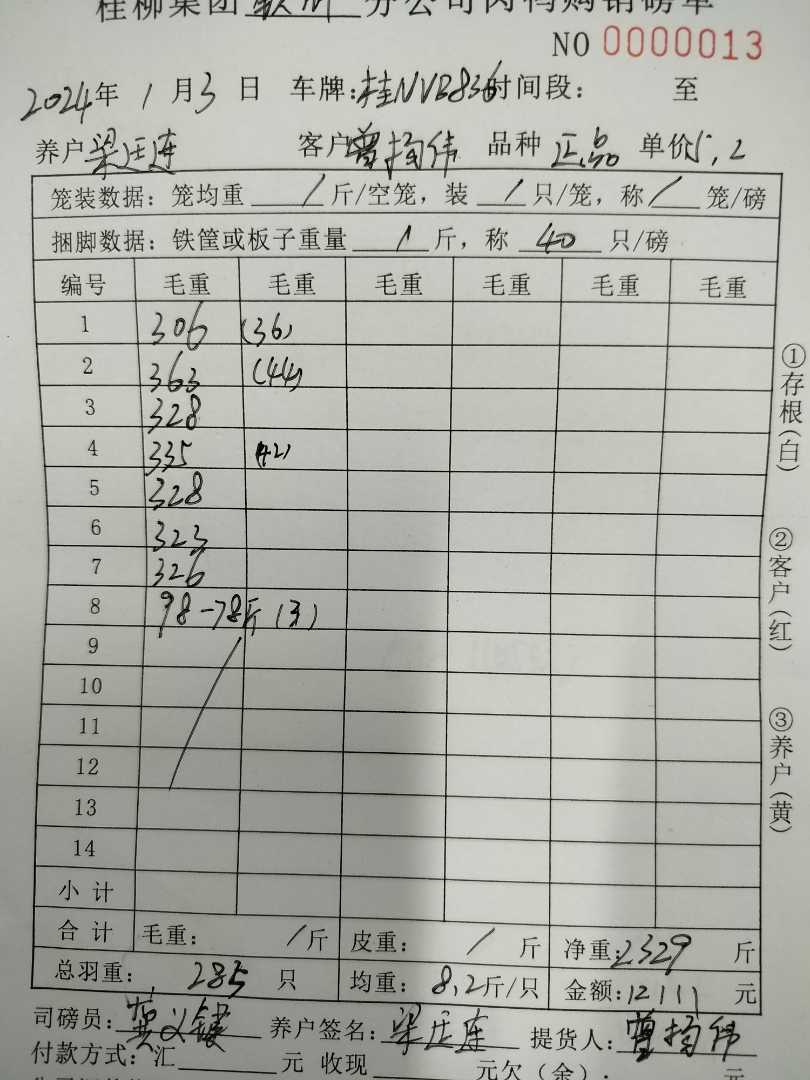 桂柳集团 钦州 分公司肉鸭购销磅单
NO 0000013
2024年 1 月 3 日 车牌:桂NVB836 时间段: 至
养户 梁庄连 客户 曾扬伟 品种 正品 单价 5.2
笼装数据: 笼均重 / 斤/空笼, 装 / 只/笼, 称 / 笼/磅
捆脚数据: 铁筐或板子重量 / 斤, 称 40 只/磅
编号 毛重 毛重 毛重 毛重 毛重 毛重
1 306 (36)
2 363 (44)
3 328
4 335 (42)
5 328
6 323
7 326
8 98-78斤
9
10
11
12
13
14
小 计
合 计 毛重: / 斤 皮重: / 斤 净重: 2329 斤
总羽重: 285 只 均重: 8.2斤/只 金额: 12111 元
司磅员: 养户签名: 梁庄连 提货人: 曾扬伟
付款方式: 汇 元 收现 元欠(余): 元
①存根(白)
②客户(红)
③养户(黄)